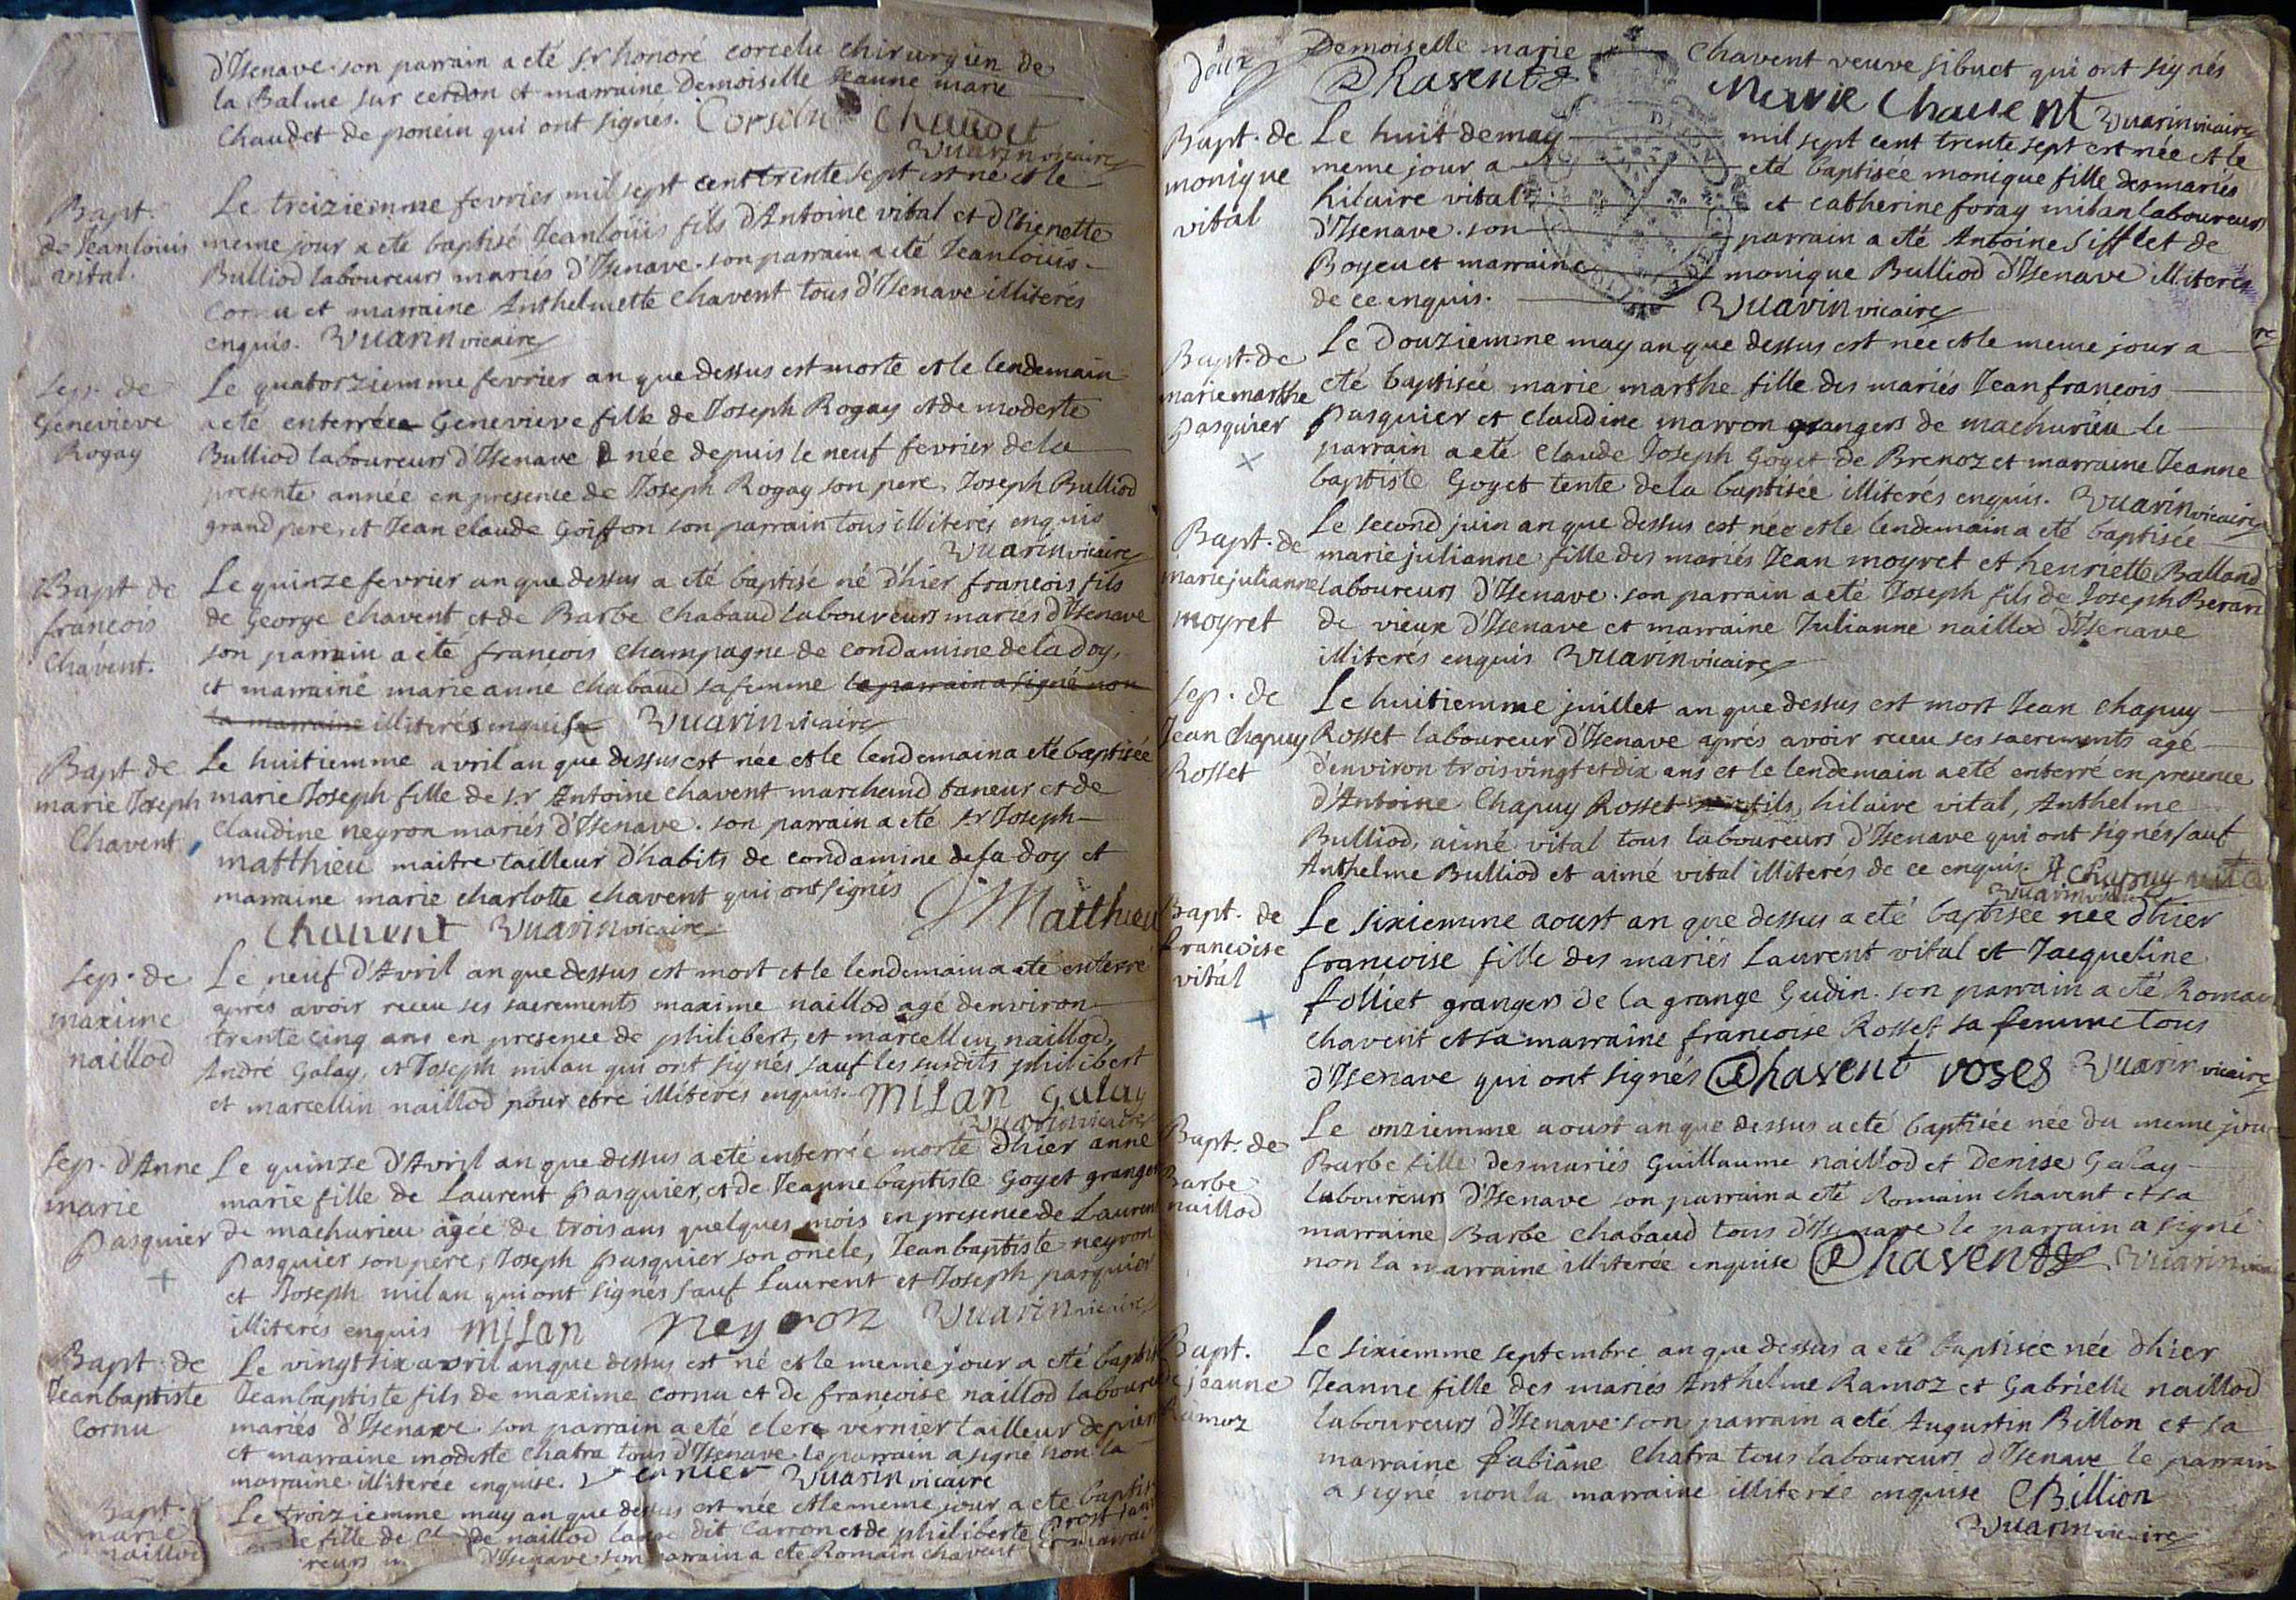 d'Isenave. son parrain a eté s.r honoré corcelu chirurgien de
la Balme sur cerdon et marraine Demoiselle Jeanne marie
Chaudet de poncin qui ont signés. Corcelu Chaudet
Vuarin vicaire
Bapt.
de Jeanlouis
vital.
Le treiziemme fevrier mil sept cent trente sept est né et le
meme jour a eté baptisé Jeanloüis fils d'Antoine vital et d'Etienette
Bulliod laboureurs mariés d'Isenave. son parrain a eté Jeanloüis
Cornu et marraine Anthelmette Chavent tous d'Isenave illiterés
enquis. Vuarin vicaire
Sep. de
Genevieve
Rogay
Le quatorziemme fevrier an que dessus est morte et le lendemain
a eté enterrée Genevieve fille de Joseph Rogay et de modeste
Bulliod laboureurs d'Isenave née depuis le neuf fevrier de la
presente année en presence de Joseph Rogay son pere, Joseph Bulliod
grand pere, et Jean Claude Goiffon son parrain tous illiterés enquis
Vuarin vicaire
Bapt de
francois
Chavent.
Le quinze fevrier an que dessus a eté baptisé né d'hier francois fils
de George Chavent et de Barbe Chabaud laboureurs mariés d'Isenave
son parrain a eté francois Champagne de condamine de la doy,
et marraine marie anne Chabaud sa femme le parrain a signé non
la marraine illiterés enquis Vuarin vicaire
Bapt de
marie Joseph
Chavent
Le huitiemme avril an que dessus est née et le lendemain a eté baptisée
marie Joseph fille de s.r Antoine Chavent marchand taneur et de
Claudine neyron mariés d'Isenave. son parrain a eté s.r Joseph
matthieu maitre tailleur d'habits de condamine de la doy et
marraine marie charlotte chavent qui ont signés J Matthieu
Chavent Vuarin vicaire
Sep. de
maxime
naillod
Le neuf d'Avril an que dessus est mort et le lendemain a eté enterré
aprés avoir receu ses sacrements maxime naillod agé denviron
trente cinq ans en presence de philibert, et marcellin naillod,
André Galay, et Joseph milan qui ont signés sauf les susdits philibert
et marcellin naillod pour etre illiterés enquis. Milan Galay
Vuarin vicaire
Sep. d'Anne
marie
Pasquier
Le quinze d'Avril an que dessus a eté enterrée morte d'hier anne
marie fille de Laurent pasquier, et de Jeanne baptiste Goyet granger
de machurieu agée de trois ans quelques mois en presence de Laurent
Pasquier son pere, Joseph pasquier son oncle, Jean baptiste neyron
et Joseph milan qui ont signés sauf Laurent et Joseph parquier
illiterés enquis Milan Neyron Vuarin vicaire
Bapt. de
Jeanbaptiste
Cornu
Le vingt six avril an que dessus est né et le meme jour a eté baptisé
Jeanbaptiste fils de maxime cornu et de francoise naillod laboureurs
mariés d'Isenave. son parrain a eté clere vernier tailleur de pierre
et marraine modeste chatra tous d'Isenave. le parrain a signé non la
marraine illiterée enquise. Vernier Vuarin vicaire
Bapt.
marie
naillod
Le troiziemme may an que dessus est née et le meme jour a eté baptisée
fille de naillod dit carron et de philiberte Prost
reurs d'Isenave son parrain a eté Romain chavent et marraine
deux
Demoiselle marie Chavent veuve sibuet qui ont signés
Chavent Marie Chavent Vuarin vicaire
Bapt. de
monique
vital
Le huit de may mil sept cent trente sept est née et le
meme jour a eté baptisée monique fille des mariés
hilaire vital et catherine foray milan laboureurs
d'Isenave. son parrain a eté Antoine Sifflet de
Boyeu et marraine monique Bulliod d'Isenave illiterés
de ce enquis. Vuarin vicaire
Bapt. de
marie marthe
Pasquier
Le Douziemme may an que dessus est née et le meme jour a
eté baptisée marie marthe fille des mariés Jean francois
pasquier et claudine marron grangers de machurieu le
parrain a eté Claude Joseph Goyet de Brenoz et marraine Jeanne
baptiste Goyet tente de la baptisée illiterés enquis. Vuarin vicaire
Bapt. de
marie julianne
moyret
Le second juin an que dessus est née et le lendemain a eté baptisée
marie julianne fille des mariés Jean moyret et henriette Balland
laboureurs d'Isenave. son parrain a eté Joseph fils de Joseph Berard
de vieux d'Isenave et marraine Julianne naillod d'Isenave
illiteres enquis Vuarin vicaire
Sep. de
Jean Chapuy
Rosset
Le huitiemme juillet an que dessus est mort Jean Chapuy
Rosset laboureur d'Isenave aprés avoir receu ses sacrements agé
denviron trois vingt et dix ans et le lendemain a eté enterré en presence
d'Antoine Chapuy Rosset son fils, hilaire vital, Anthelme
Bulliod, aimé vital tous laboureurs d'Isenave qui ont signés sauf
Anthelme Bulliod et aimé vital illiterés de ce enquis. A Chapuy vital
Vuarin vicaire
Bapt. de
francoise
vital
Le sixiemme aoust an que dessus a eté baptisée née d'hier
francoise fille des mariés Laurent vital et Jacqueline
folliet grangers de la grange Gudin. son parrain a eté Romain
chavent et sa marraine francoise Rosset sa femme tous
d'Isenave qui ont signés Chavent roses Vuarin vicaire
Bapt. de
Barbe
naillod
Le onziemme aoust an que dessus a eté baptisée née du meme jour
Barbe fille des mariés Guillaume naillod et Denise Galay
laboureurs d'Isenave son parrain a eté Romain chavent et sa
marraine Barbe Chabaud tous d'Isenave le parrain a signé
non la marraine illiterée enquise Chavent Vuarin vicaire
Bapt.
de jeanne
Ramoz
Le sixiemme septembre an que dessus a eté baptisée née d'hier
Jeanne fille des mariés Anthelme Ramoz et Gabrielle naillod
laboureurs d'Isenave. son parrain a eté Augustin Billon et sa
marraine fabiane Chatra tous laboureurs d'Isenave le parrain
a signé non la marraine illiterée enquise Billion
Vuarin vicaire